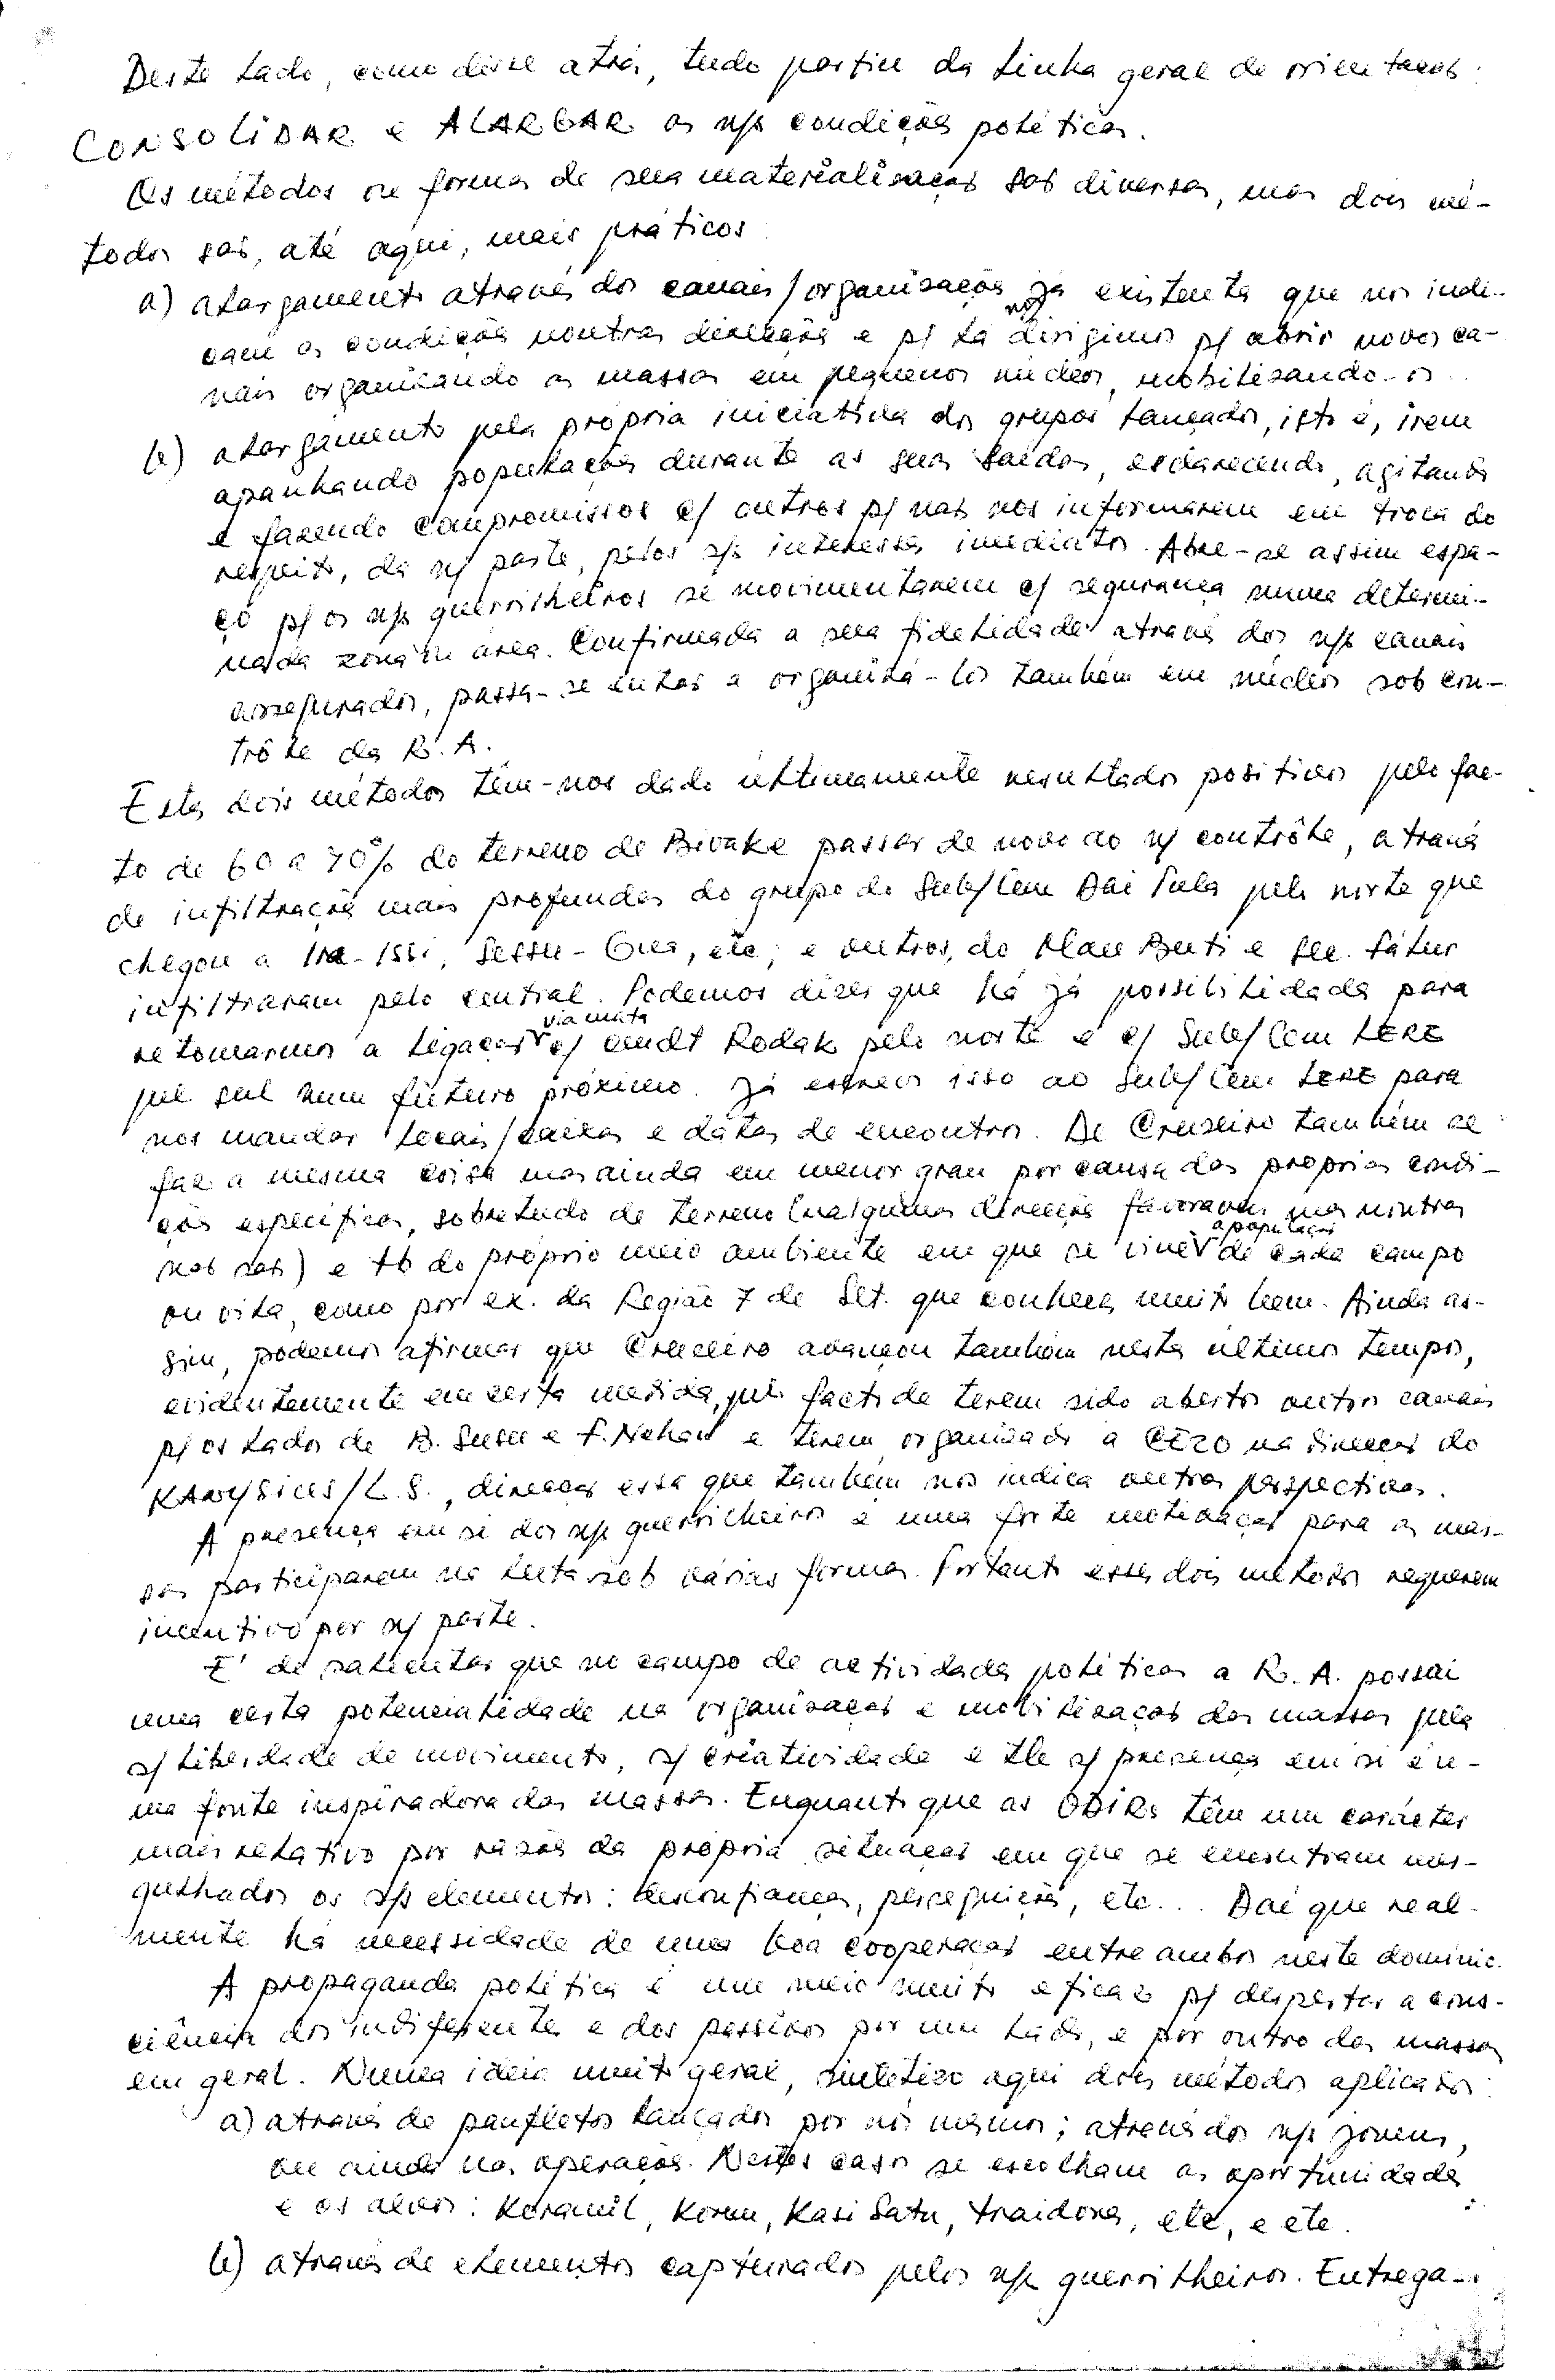 Deste lado, como disse atrás, tudo partiu da linha geral de orientação:
CONSOLIDAR e ALARGAR as n/s condições políticas.
Os métodos ou formas de sua materialização são diversas, mas dois mé-
todos são, até aqui, mais práticos:
a) alargamento através dos canais/organizações já existentes que nos indi-
cam as condições noutras direcções e p/ lá nos dirigimos p/ abrir novos ca-
nais organizando as massas em pequenos núcleos, mobilizando-os..
b) alargamento pela própria iniciativa dos grupos lançados, isto é, irem
apanhando populações durante as suas saídas, esclarecendo, agitando
e fazendo compromissos c/ outros p/ não nos informarem em troca do
respeito, da n/ parte, pelos s/s interesses imediatos. Abre-se assim espa-
ço p/ os n/s guerrilheiros se movimentarem c/ segurança numa determi-
nada zona ou área. Confirmada a sua fidelidade através dos n/s canais
assegurados, passa-se então a organizá-los também em núcleos sob con-
trôle da R.A.
Estes dois métodos têm-nos dado ùltimamente resultados positivos pelo fac-
to de 60 a 70% do terreno de Bivake passar de novo ao n/ contrôle, através
de infiltrações mais profundas do grupo do Sub/Cem Dai Tula pelo norte que
chegou a Ira-Issi, Sessu-Gua, etc; e outros, do Mau Buti e Sec. Fátur
infiltraram pelo central. Podemos dizer que há já possibilidades para
retomarmos a ligação via mata c/ cmdt Rodak pelo norte e c/ Sub/Cem LERE
pelo sul num futuro próximo. Já escrevi isso ao Sub/Cem LERE para
nos mandar locais/caixas e datas de encontros. De Cruzeiro também se
faz a mesma coisa mas ainda em menor grau por causa das próprias condi-
ções específicas, sobretudo de terreno (nalgumas direcções favoráveis mas noutras
não são) e tb do próprio meio ambiente em que se vive a população de cada campo
ou vila, como por ex. da Região 7 de Set. que conheces muito bem. Ainda as-
sim, podemos afirmar que Cruzeiro avançou também nestes últimos tempos,
evidentemente em certa medida, pelo facto de terem sido abertos outros canais
p/ os lados de B. Susu e F. Nehan e terem organizado a CEZO na direcção do
/L.S., direcção essa que também nos indica outras perspectivas.
A presença em si dos n/s guerrilheiros é uma forte motivação para as mas-
sas participarem na luta sob várias formas. Portanto esses dois métodos requerem
incentivo por n/ parte.
E' de salientar que no campo de actividades políticas a R.A. possui
uma certa potencialidade na organização e mobilização das massas pela
s/ liberdade de movimento, s/ criatividade e s/ presença em si é u-
ma fonte inspiradora das massas. Enquanto que as ODIRs têm um carácter
mais relativo por razões da própria situação em que se encontram mer-
gulhados os s/s elementos: desconfiança, perseguições, etc... Daí que real-
mente há necessidade de uma boa cooperação entre ambos neste domínio.
A propaganda política é um meio muito eficaz p/ despertar a cons-
ciência dos indiferentes e dos passivos por um lado, e por outro das massas
em geral. Numa ideia muito geral, sintetizo aqui dois métodos aplicados:
a) através de panfletos lançados por nós mesmos; através dos n/s jovens,
ou ainda nas operações. Nestes casos se escolham as oportunidades
e os alvos: Koramil, Korem, Kasi Satu, traidores, etc, e etc.
b) através de elementos capturados pelos n/s guerrilheiros. Entrega-